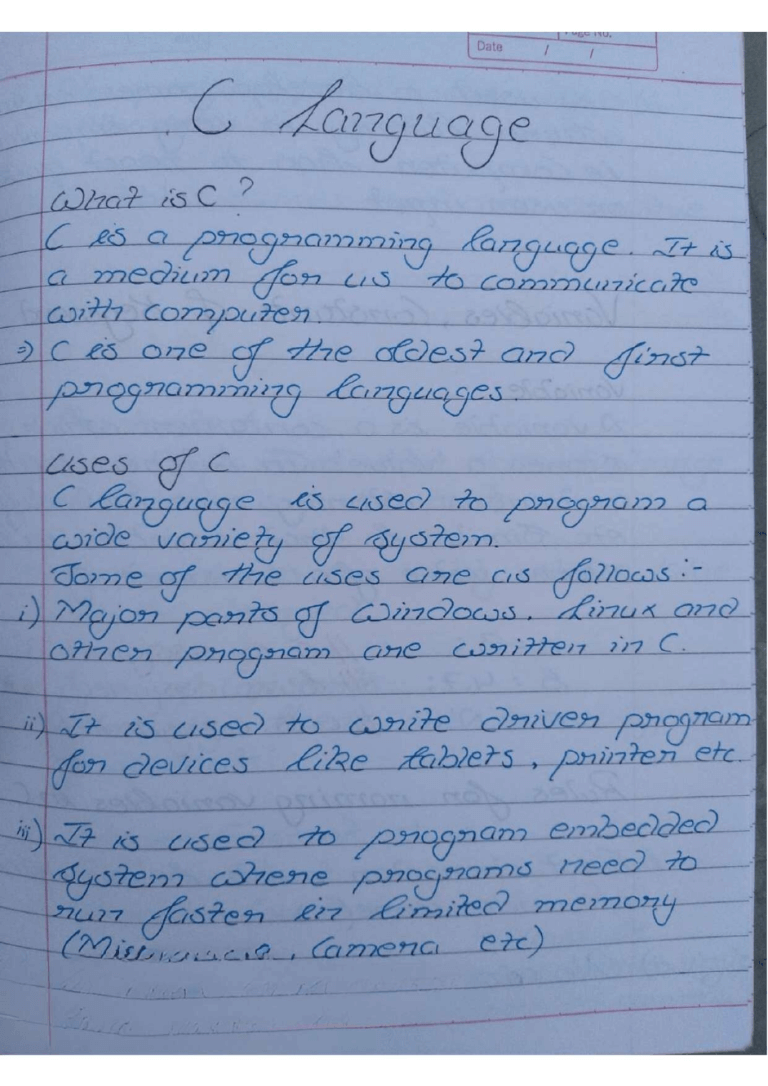 Page No.
Date / /
C Language
What is C?
C is a programming language. It is
a medium for us to communicate
with computer.
⇒ C is one of the oldest and first
programming languages.
Uses of C
C language is used to program a
wide variety of system.
Some of the uses are as follows:-
i) Major parts of Windows. Linux and
other program are written in C.
ii) It is used to write driver program
for devices like tablets, printer etc.
iii) It is used to program embedded
system where programs need to
run faster in limited memory
, Camera etc)